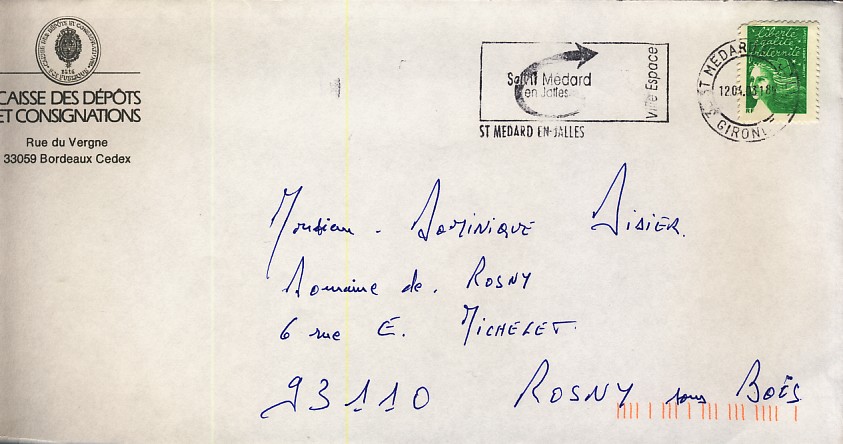 CAISSE DES DÉPÔTS
ET CONSIGNATIONS
Rue du Vergne
33059 Bordeaux Cedex
Saint Médard
en Jalles
Ville Espace
ST MEDARD EN JALLES
ST MEDARD
12.04.03 18
GIRONDE
Liberté
égalité
fraternité
Monsieur - DOMINIQUE DIDIER.
Domaine de. ROSNY
6 rue E. MICHELET.
93110 ROSNY sous BOËS